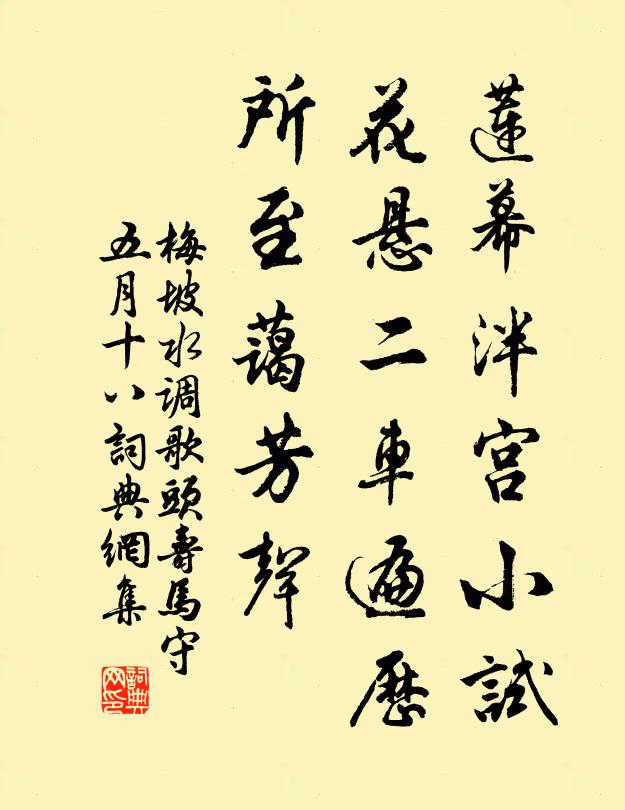 蓮幕泮宮小試
花懸二車遍歷
所至藹芳聲
梅坡水調歌頭壽馬守
五月十八詞典網集
詞典網印